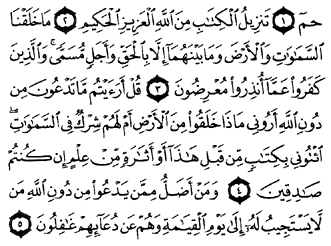 حمٓ ﴿١﴾ تَنزِيلُ ٱلْكِتَٰبِ مِنَ ٱللَّهِ ٱلْعَزِيزِ ٱلْحَكِيمِ ﴿٢﴾ مَا خَلَقْنَا
ٱلسَّمَٰوَٰتِ وَٱلْأَرْضَ وَمَا بَيْنَهُمَآ إِلَّا بِٱلْحَقِّ وَأَجَلٍ مُّسَمًّى ۚ وَٱلَّذِينَ
كَفَرُوا۟ عَمَّآ أُنذِرُوا۟ مُعْرِضُونَ ﴿٣﴾ قُلْ أَرَءَيْتُم مَّا تَدْعُونَ مِن
دُونِ ٱللَّهِ أَرُونِى مَاذَا خَلَقُوا۟ مِنَ ٱلْأَرْضِ أَمْ لَهُمْ شِرْكٌ فِى ٱلسَّمَٰوَٰتِ ۖ
ٱئْتُونِى بِكِتَٰبٍ مِّن قَبْلِ هَٰذَآ أَوْ أَثَٰرَةٍ مِّنْ عِلْمٍ إِن كُنتُمْ
صَٰدِقِينَ ﴿٤﴾ وَمَنْ أَضَلُّ مِمَّن يَدْعُوا۟ مِن دُونِ ٱللَّهِ مَن
لَّا يَسْتَجِيبُ لَهُۥٓ إِلَىٰ يَوْمِ ٱلْقِيَٰمَةِ وَهُمْ عَن دُعَآئِهِمْ غَٰفِلُونَ ﴿٥﴾